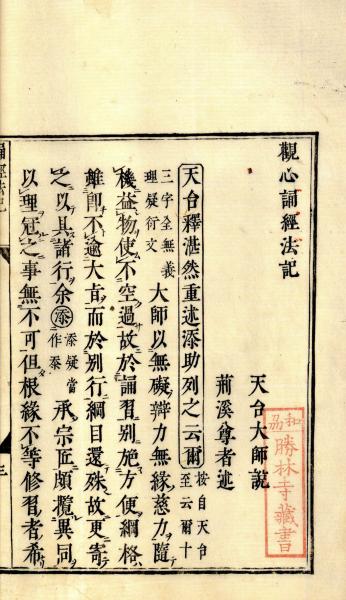 觀心誦經法記
天台大師說
荊溪尊者述
天台釋湛然重述添助列之云爾 按自天台至云爾十
三字全無義理疑衍文 大師以無礙辯力無緣慈力隨
機益物使不空過故於誦習別施方便綱格
雖卽不逾大旨而於別行綱目還殊故更寄
之以其諸行余添 添疑當作忝 承宗匠頗攬異同
以理冠之事無不可但根緣不等修習者希
和刕
勝林寺藏書
誦經法記
三